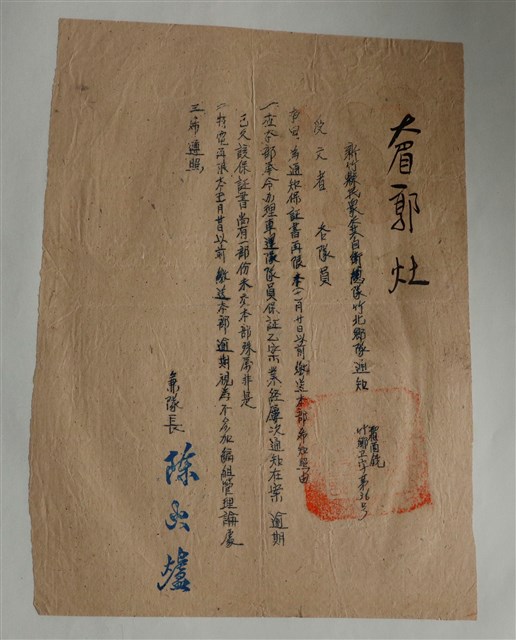 郭灶
新竹縣民眾反共自衛總隊竹北鄉隊通知
竹鄉卫字第36号
受文者 各隊員
事由:為通知保証書再限本(一)月廿日以前繳送本部希知照由
一、查本部奉令办理車運隊隊員保証乙案業經屢次通知在案逾期
已久該保証書尚有一部份未交本部殊屬非是
二、特定再限本(一)月廿日以前繳送本部逾期視為不參加編組管理論處
三、希遵照
兼隊長